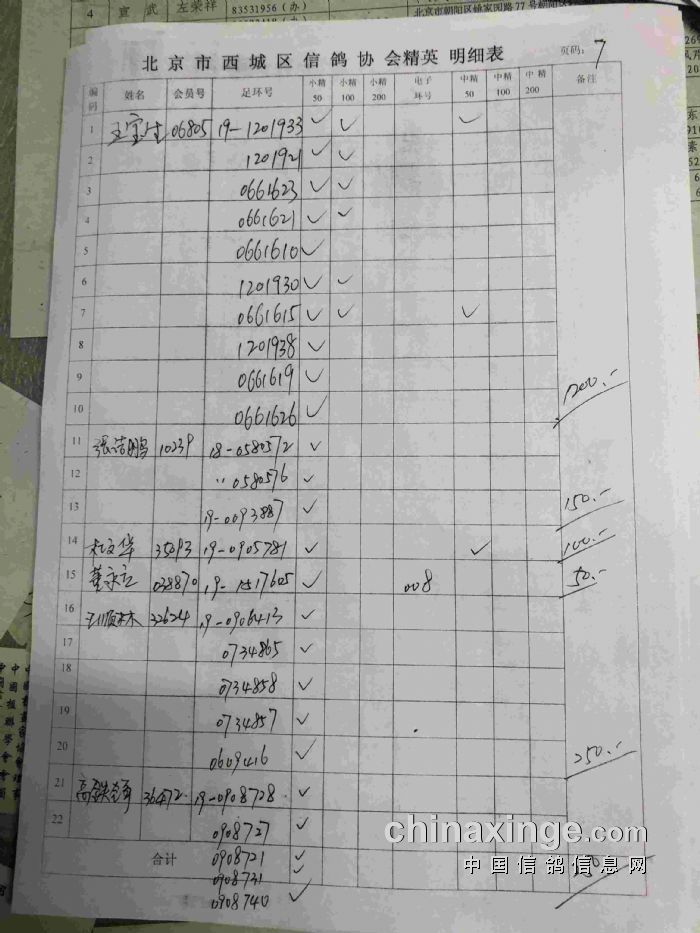 4 宣 武 左荣祥 83531956（办）
北京市西城区信鸽协会精英 明细表 页码：7
编码 姓名 会员号 足环号 小精50 小精100 小精200 电子环号 中精50 中精100 中精200 备注
1 王宝生 06805 19-1201933 ✓ ✓ ✓
2 1201921 ✓ ✓
3 0661623 ✓ ✓
4 0661621 ✓ ✓
5 0661610 ✓
6 1201930 ✓ ✓
7 0661615 ✓ ✓ ✓
8 1201938 ✓
9 0661619 ✓
10 0661626 ✓ 1200.-
11 张浩鹏 10239 18-0580572 ✓
12 〃 0580576 ✓
13 19-0093887 ✓ 150.-
14 杜文华 35093 19-0905781 ✓ ✓ 100.-
15 董永立 038870 19-1517605 ✓ 008 50.-
16 王顺林 32624 19-0906413 ✓
17 0734865 ✓
18 0734858 ✓
19 0734857 ✓
20 0609416 ✓ 250.-
21 高铁锋 36472 19-0908728 ✓
22 0908727 ✓
合计 0908721 ✓
0908731 ✓
0908740 ✓
chinaxinge.com
中国信鸽信息网